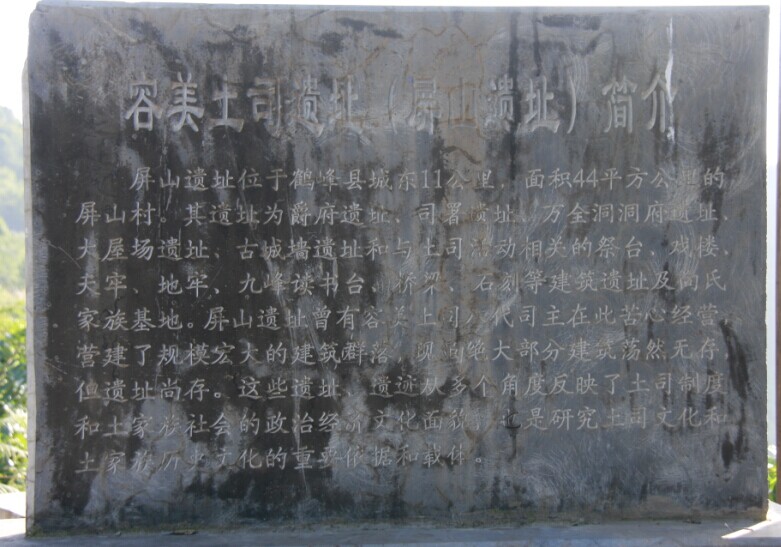 容美土司遗址（屏山遗址）简介
屏山遗址位于鹤峰县城东11公里，面积44平方公里的
屏山村。其遗址为爵府遗址、司署遗址、万全洞洞府遗址、
大屋场遗址、古城墙遗址和与土司活动相关的祭台、戏楼、
天牢、地牢、九峰读书台、桥梁、石刻等建筑遗址及向氏
家族基地。屏山遗址曾有容美土司八代司主在此苦心经营，
营建了规模宏大的建筑群落，现绝大部分建筑荡然无存，
但遗址尚存。这些遗址、遗迹从多个角度反映了土司制度
和土家族社会的政治经济文化面貌，也是研究土司文化和
土家族历史文化的重要依据和载体。